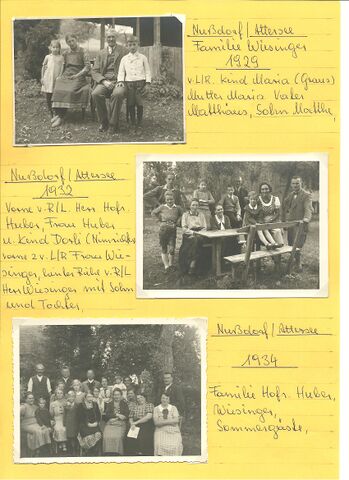 Nußdorf/Attersee
Familie Wiesinger
1929
v.L/R. Kind Maria (Graus)
Mutter Maria Vater
Matthäus, Sohn Matth.,
Nußdorf/Attersee
1932
Vorne v. R/L. Herr Hofr.
Huber, Frau Huber
u. Kind Dorli
vorne 2 v. L/R Frau Wie-
singer, hintere Reihe v. R/L
Herr Wiesinger mit Sohn
und Tochter,
Nußdorf/Attersee
1934
Familie Hofr. Huber,
Wiesinger,
Sommergäste,